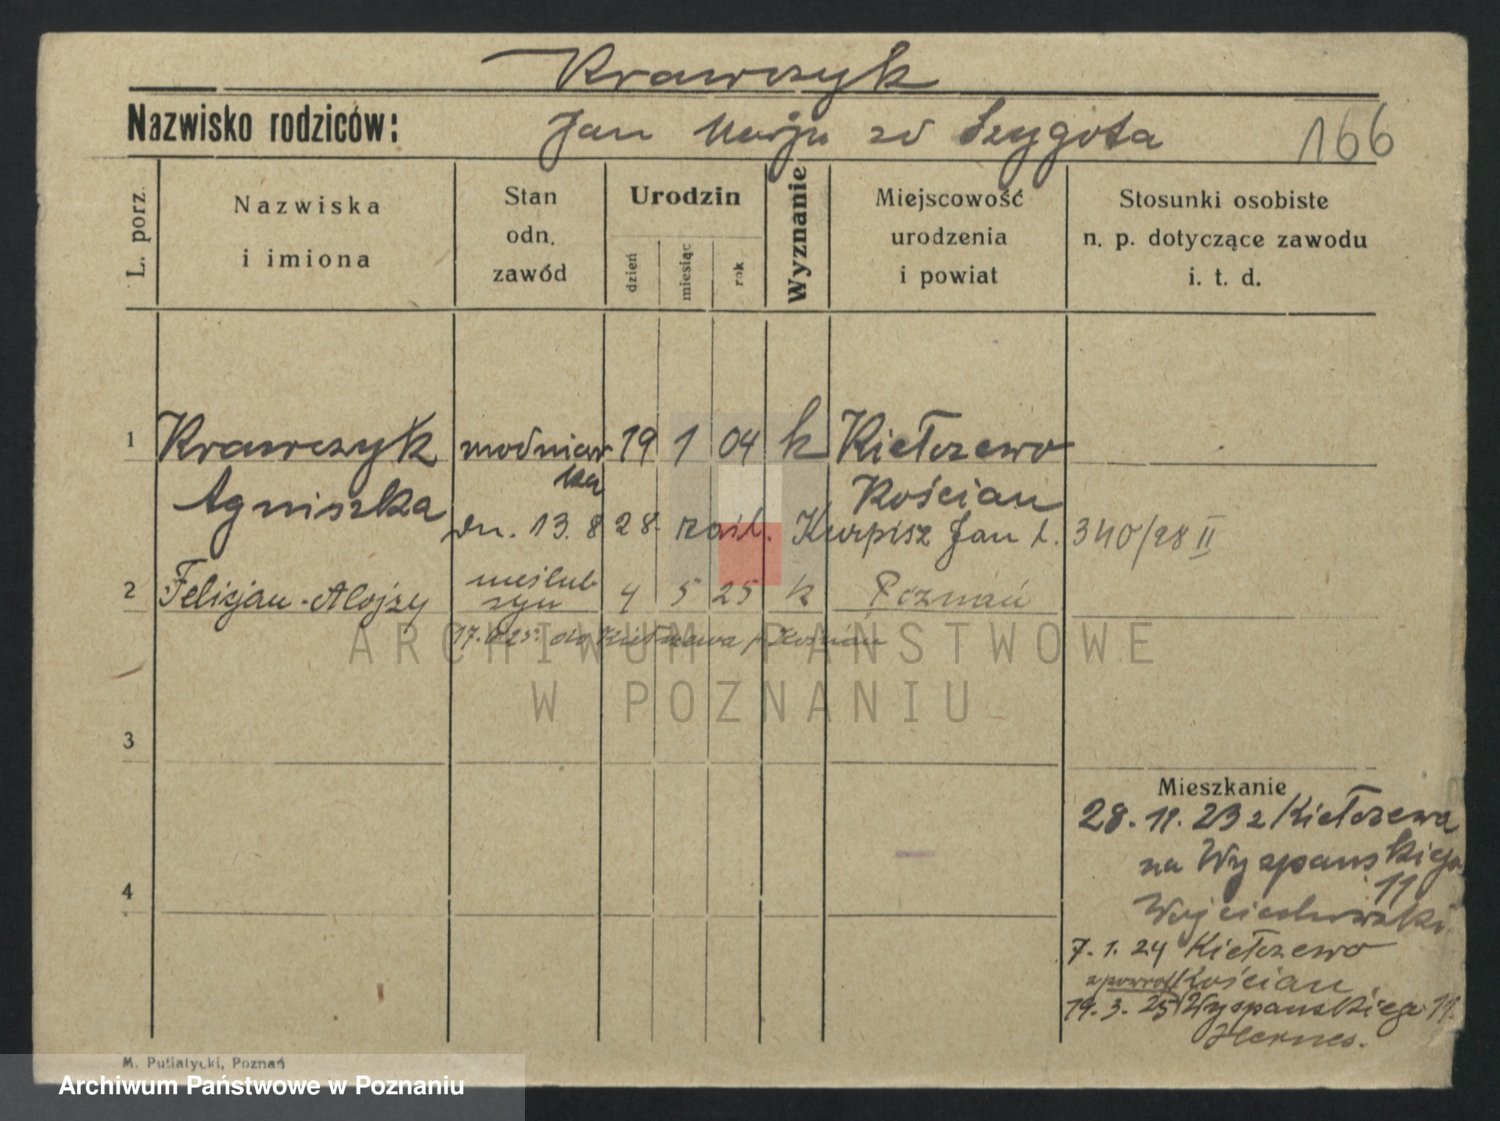 Krawczyk
Nazwisko rodziców: Jan Marja zd Szygota 166
L. porz. Nazwiska i imiona Stan odn. zawód Urodzin dzień miesiąc rok Wyznanie Miejscowość urodzenia i powiat Stosunki osobiste n. p. dotyczące zawodu i. t. d.
1 Krawczyk modniar 19 1 04 k Kiełczewo
Agniszka ska Kościan
dn. 13. 8 28 zaśl. Kurpisz Jan L. 340/28 II
2 Felicjan-Alojzy nieślub. syn 4 5 25 k Poznań
17. 25. do Kiełczewa p. Kościan
ARCHIWUM PAŃSTWOWE
W POZNANIU
3
Mieszkanie
28. 11. 23 z Kiełczewa
na Wyspanskiego
11
Wojciechowski
4
7. 1. 24 Kiełczewo
z powrot Kościan
19. 3. 25 Wyspanskiego 11.
M. Putiatycki, Poznań
Archiwum Państwowe w Poznaniu